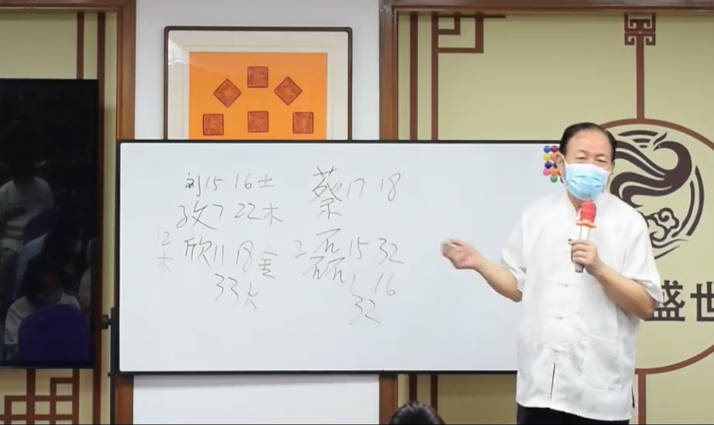 刘15 16土
孜7 22木
2木 欣11 18金
33火
蔡17 18
2 磊15 32
1 16
32
盛世